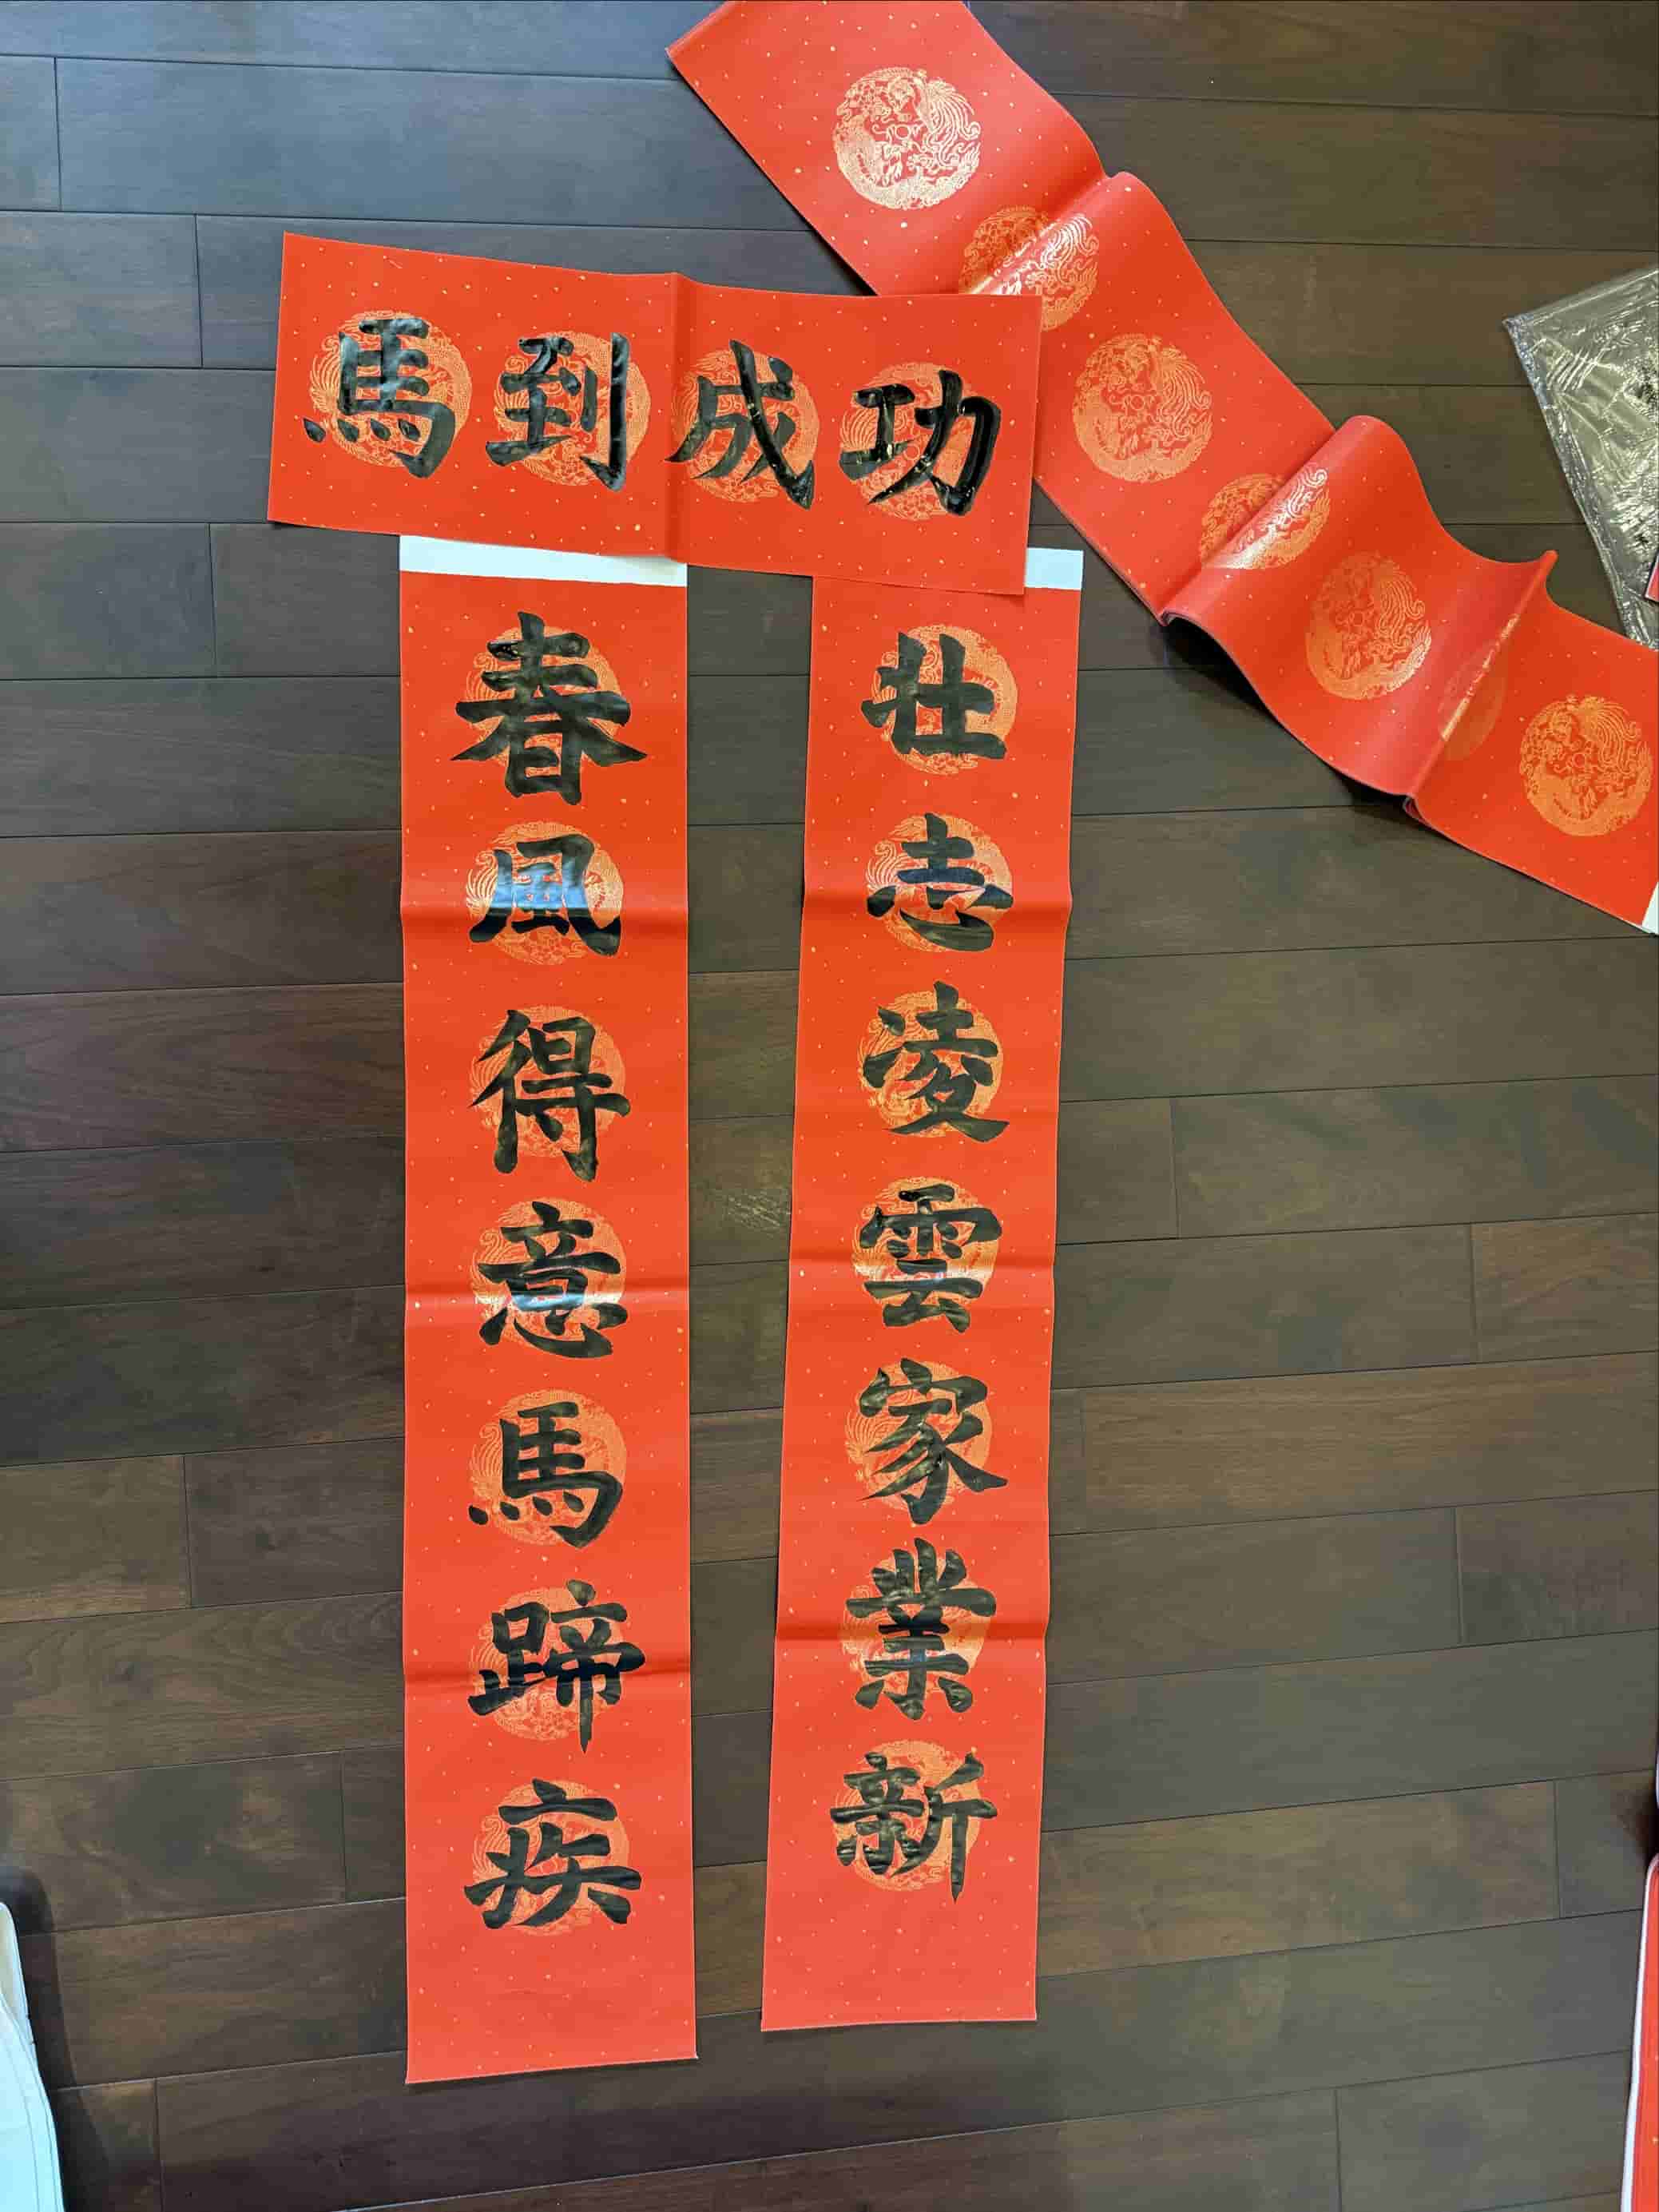 馬到成功
春風得意馬蹄疾
壯志凌雲家業新